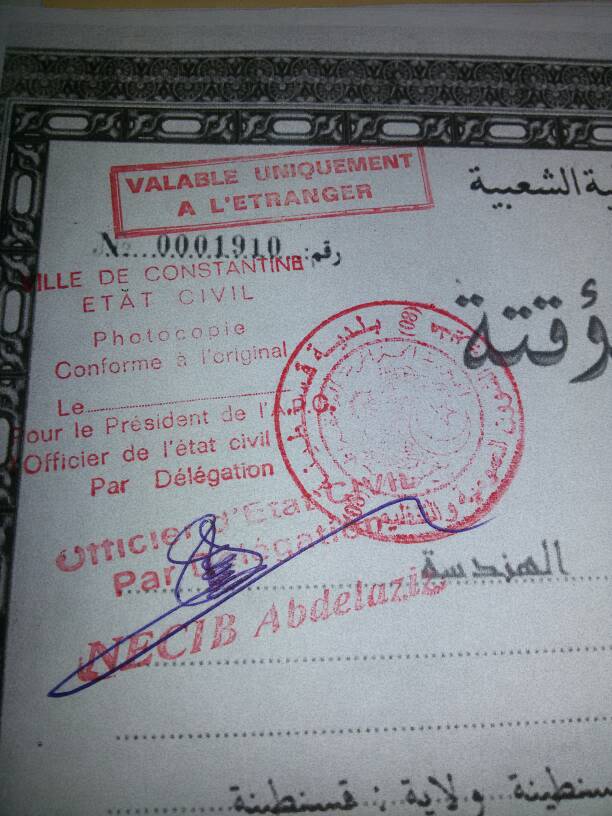 VALABLE UNIQUEMENT
A L'ETRANGER
ية الشعبية
№ 0001910 رقم:
VILLE DE CONSTANTINE
ETAT CIVIL
Photocopie
Conforme à l'original
Le
Pour le Président de l'A.P.C
l'Officier de l'état civil
Par Délégation
بلدية قسنطينة
ؤقتة
Officier d'Etat CIVIL
Par Délégation
المهندسة
NECIB Abdelaziz
سنطينة ولاية : قسنطينة